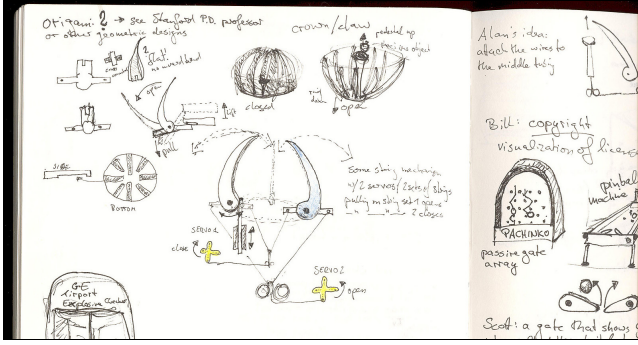 Origami? → see Stanford P.D. professor
or other geometric designs
crown/claw
pedestal up
precious object
closed
open
open
lift
SIDE
BOTTOM
Some string mechanism
w/ 2 servos/2 sets of strings
pulling on string set 1 opens
2 closes
SERVO 1
close
SERVO 2
open
GE
Airport
Explosive Checker
Alan's idea:
attach the wires to
the middle tubing
Bill: copyright
visualization of license
PACHINKO
passive gate
array
pinball
machine
Scott: a gate that shows